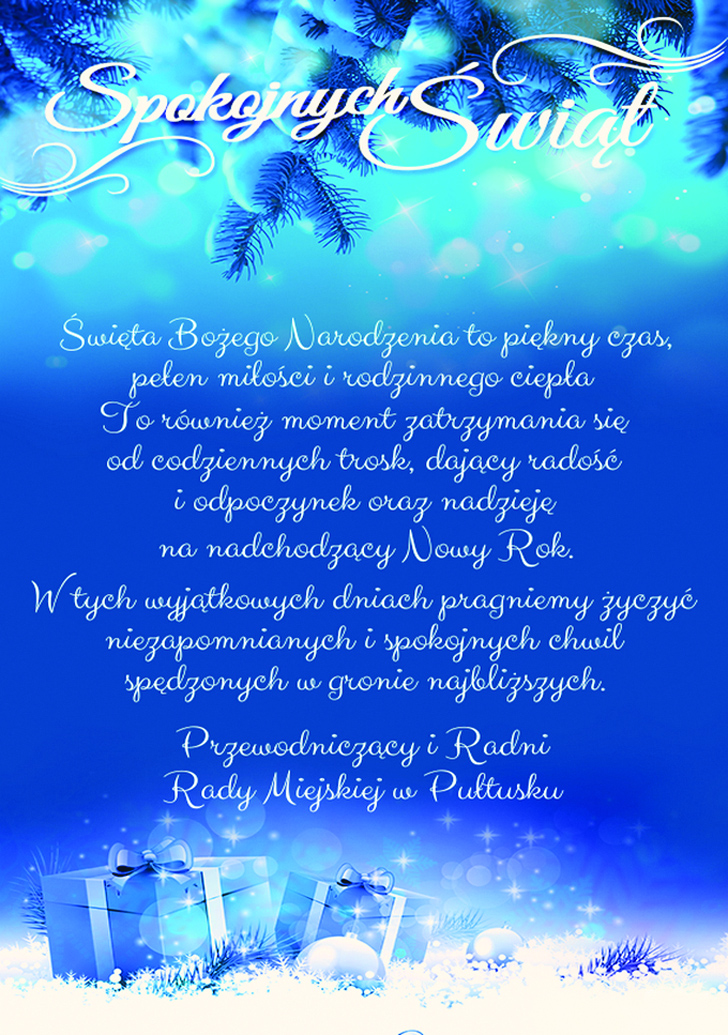 Spokojnych Świąt
Święta Bożego Narodzenia to piękny czas,
pełen miłości i rodzinnego ciepła
To również moment zatrzymania się
od codziennych trosk, dający radość
i odpoczynek oraz nadzieję
na nadchodzący Nowy Rok.
W tych wyjątkowych dniach pragniemy życzyć
niezapomnianych i spokojnych chwil
spędzonych w gronie najbliższych.
Przewodniczący i Radni
Rady Miejskiej w Pułtusku